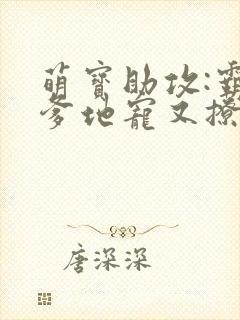 萌寶助攻:霸
爹地寵又撩
唐深深